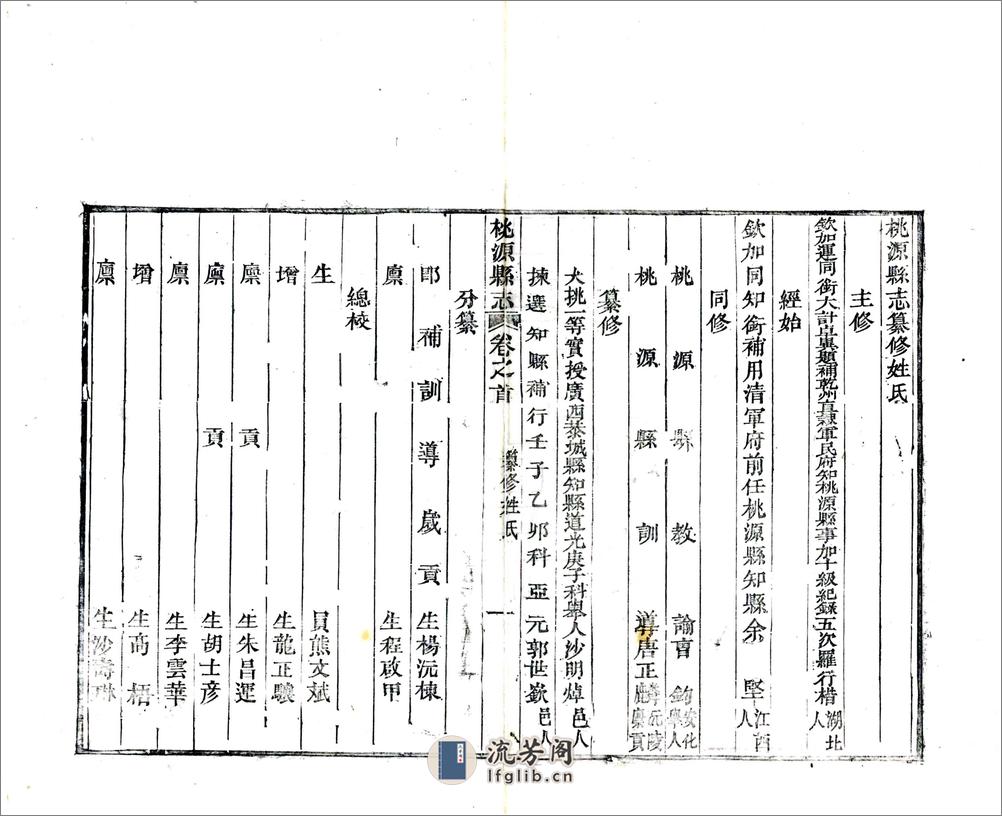 桃源縣志纂修姓氏
主修
欽加運同銜大計卓異題補乾州直隷軍民府知桃源縣事加十級紀錄五次羅行楷湖北人
經始
欽加同知銜補用清軍府前任桃源縣知縣余堅江西人
同修
桃源縣教諭曾鈞安化舉人
桃源縣訓導唐正沅陵廩貢
纂修
大挑一等實授廣西恭城縣知縣道光庚子科舉人沙明焯邑人
揀選知縣補行壬子乙卯科亞元郭世嶔邑人
桃源縣志 卷之首 纂修姓氏 一
分纂
即補訓導歲貢生楊沅棟
廩生程啟甲
總校
生員熊文斌
增生龍正驤
廩貢生朱昌運
廩貢生胡士彥
廩生李雲華
增生高梧
廩生沙壽琳
流芳阁
lfglib.cn